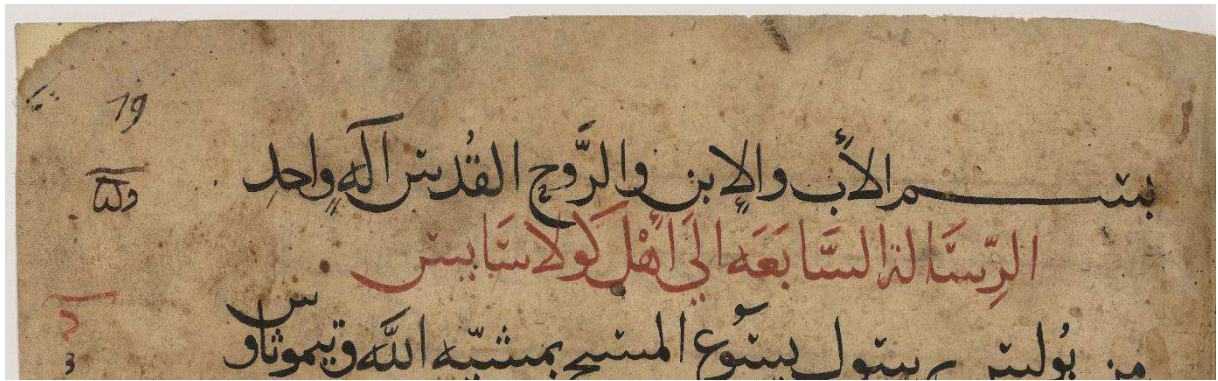 19
بسم الأب والإبن والرَّوح القُدس آله واحد
الرِّسَالة السَّابَعَه إلي أهْل كَولاسَايس
من بُولس رسول يسوع المسيح بمشيّه اللَّه وتيموثاوس
3